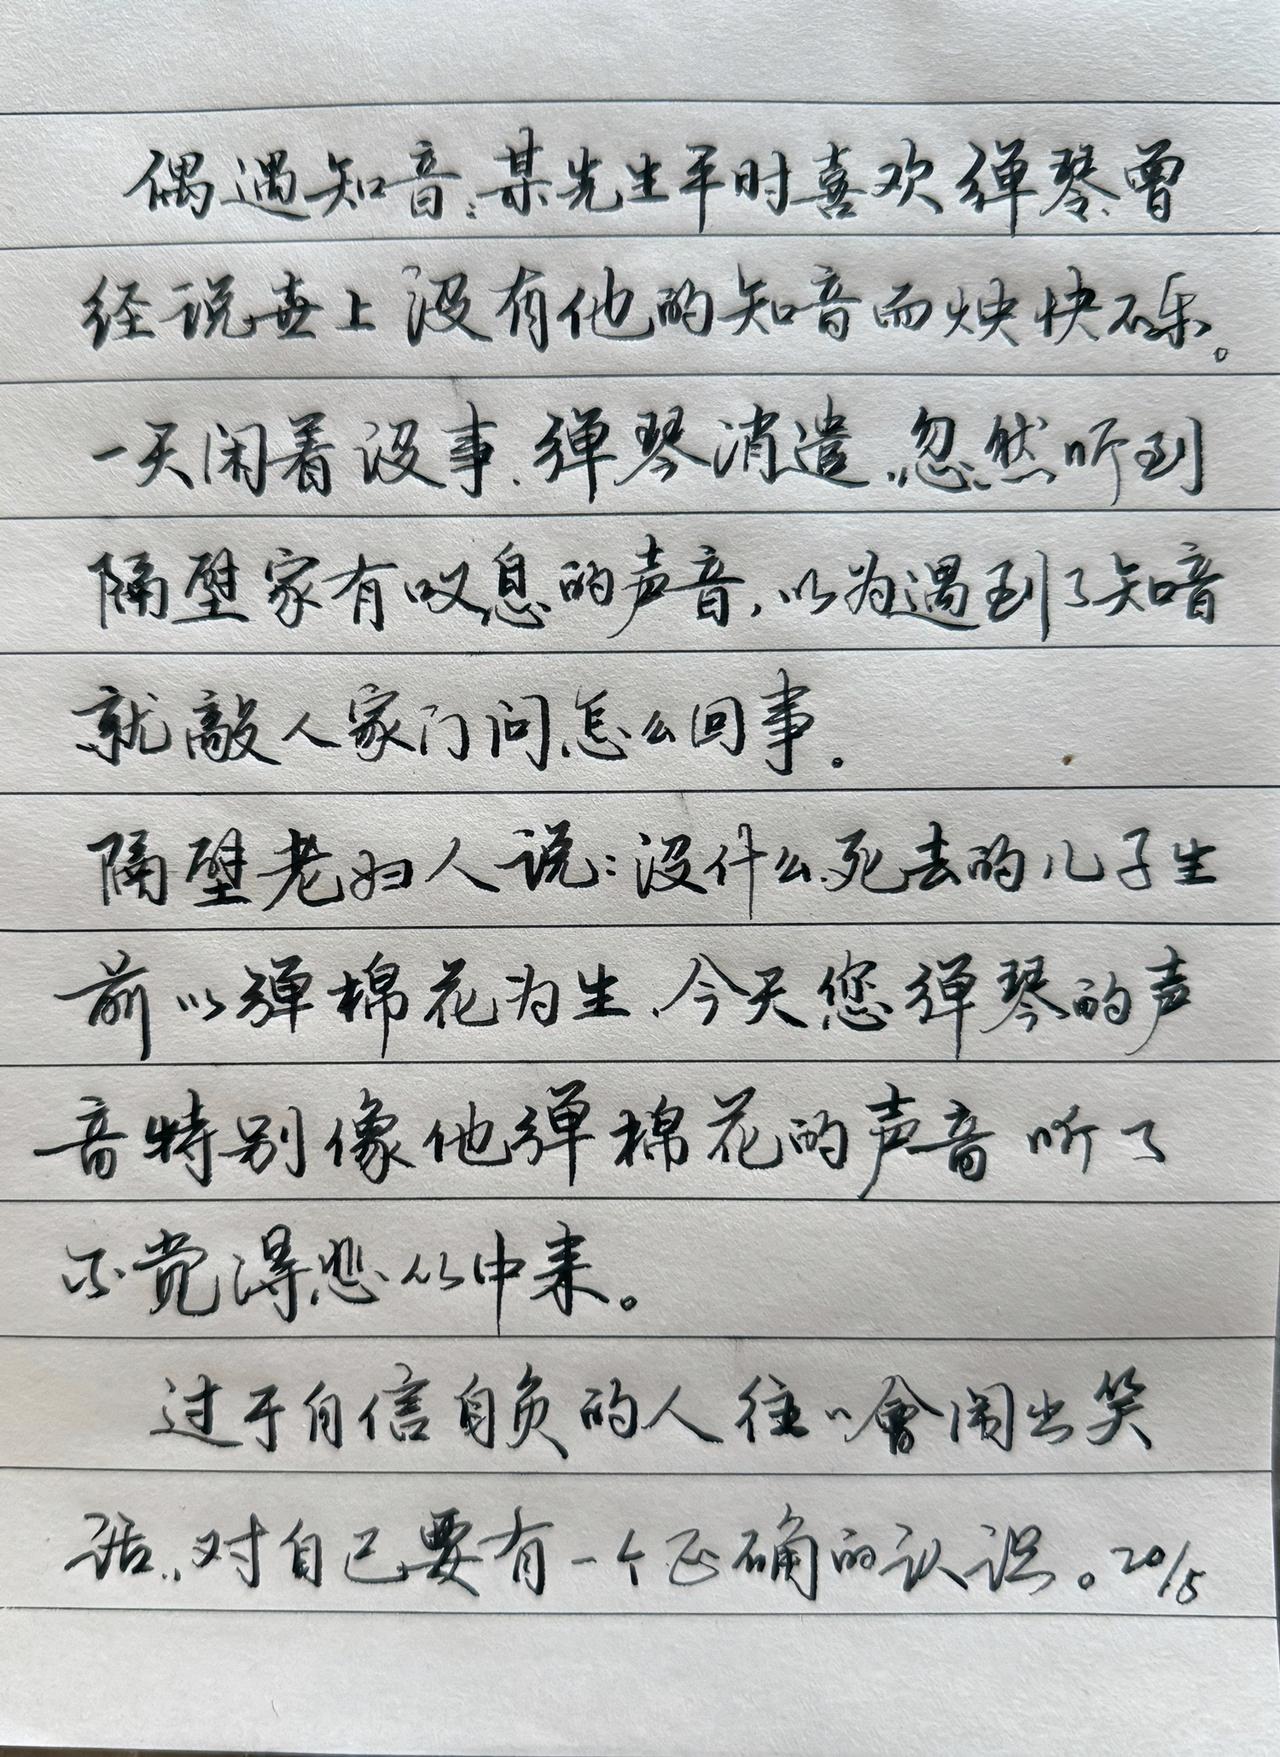 偶遇知音:某先生平时喜欢弹琴,曾
经说世上没有他的知音而怏怏不乐。
一天闲着没事,弹琴消遣,忽然听到
隔壁家有叹息的声音,以为遇到了知音
就敲人家门问怎么回事。
隔壁老妇人说:没什么,死去的儿子生
前以弹棉花为生,今天您弹琴的声
音特别像他弹棉花的声音 听了
不觉得悲从中来。
过于自信自负的人往往會闹出笑
话,对自己要有一个正确的认识。20/5